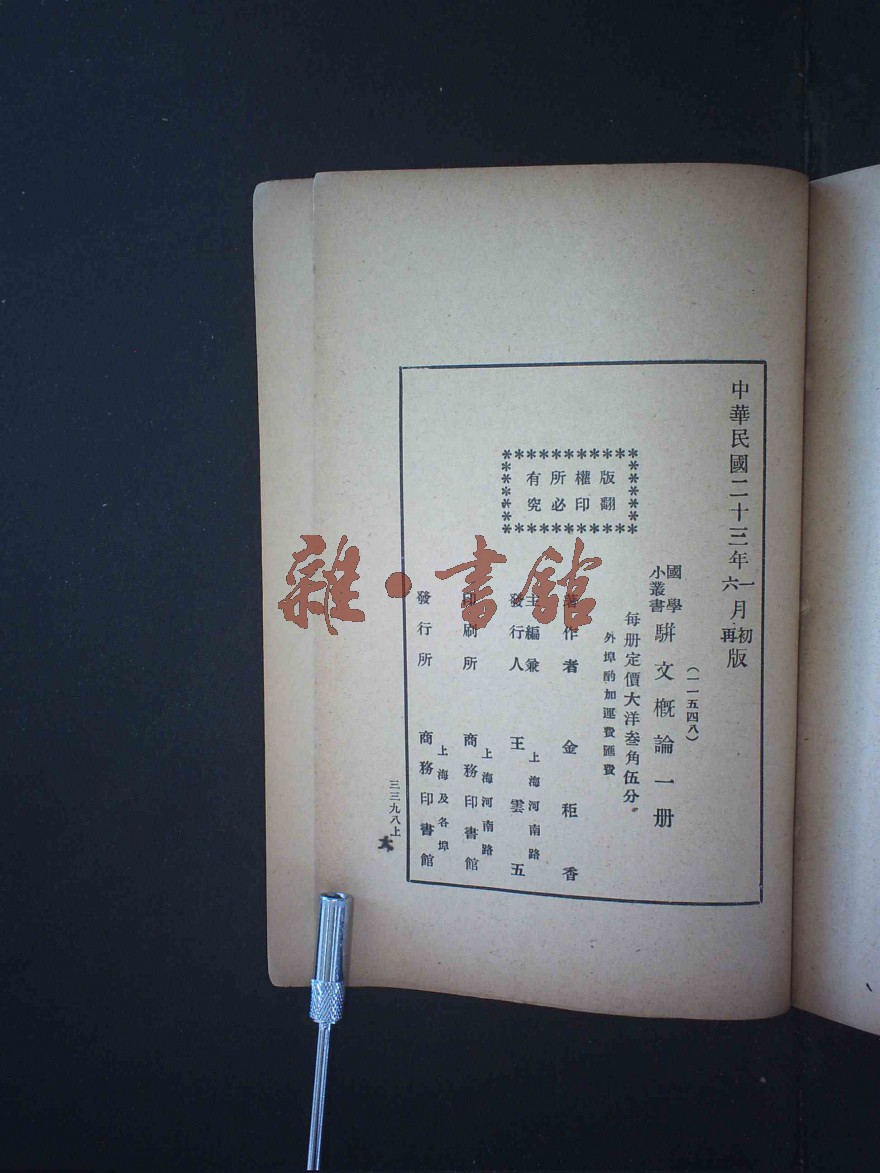 中華民國二十三年一月初版
六再
(一一五四八)
國學
小叢書
駢文槪論一册
每册定價大洋叁角伍分
外埠酌加運費匯費
版權所有
翻印必究
著作者 金秬香
主編兼
發行人
上海河南路
王雲五
印刷所
上海河南路
商務印書館
發行所
上海及各埠
商務印書館
三三九八上
大
雜·書館